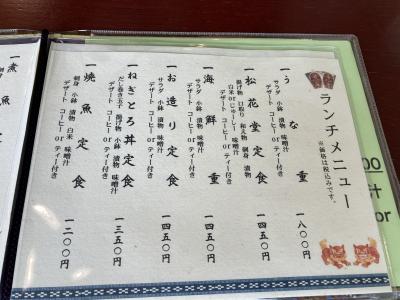 ランチメニュー
※価格は税込みです。
一 うな重 一八〇〇円
サラダ 小鉢 漬物 味噌汁
デザート コーヒーorティー付き
一 松花堂定食 一四五〇円
揚げ物 口取り 和え物 刺身 漬物
白米orじゅーし 味噌汁
デザート コーヒーorティー付き
一 海鮮重 一四五〇円
サラダ 小鉢 漬物 味噌汁
デザート コーヒーorティー付き
一 お造り定食 一四五〇円
サラダ 小鉢 漬物 味噌汁
デザート コーヒーorティー付き
一 ねぎとろ丼定食 一三五〇円
だし巻き玉子 揚げ物 小鉢 漬物 味噌汁
デザート コーヒーorティー付き
一 焼魚定食 一二〇〇円
刺身 小鉢 漬物 白米 味噌汁
デザート コーヒーorティー付き
一 煮魚定食
00
汁
or